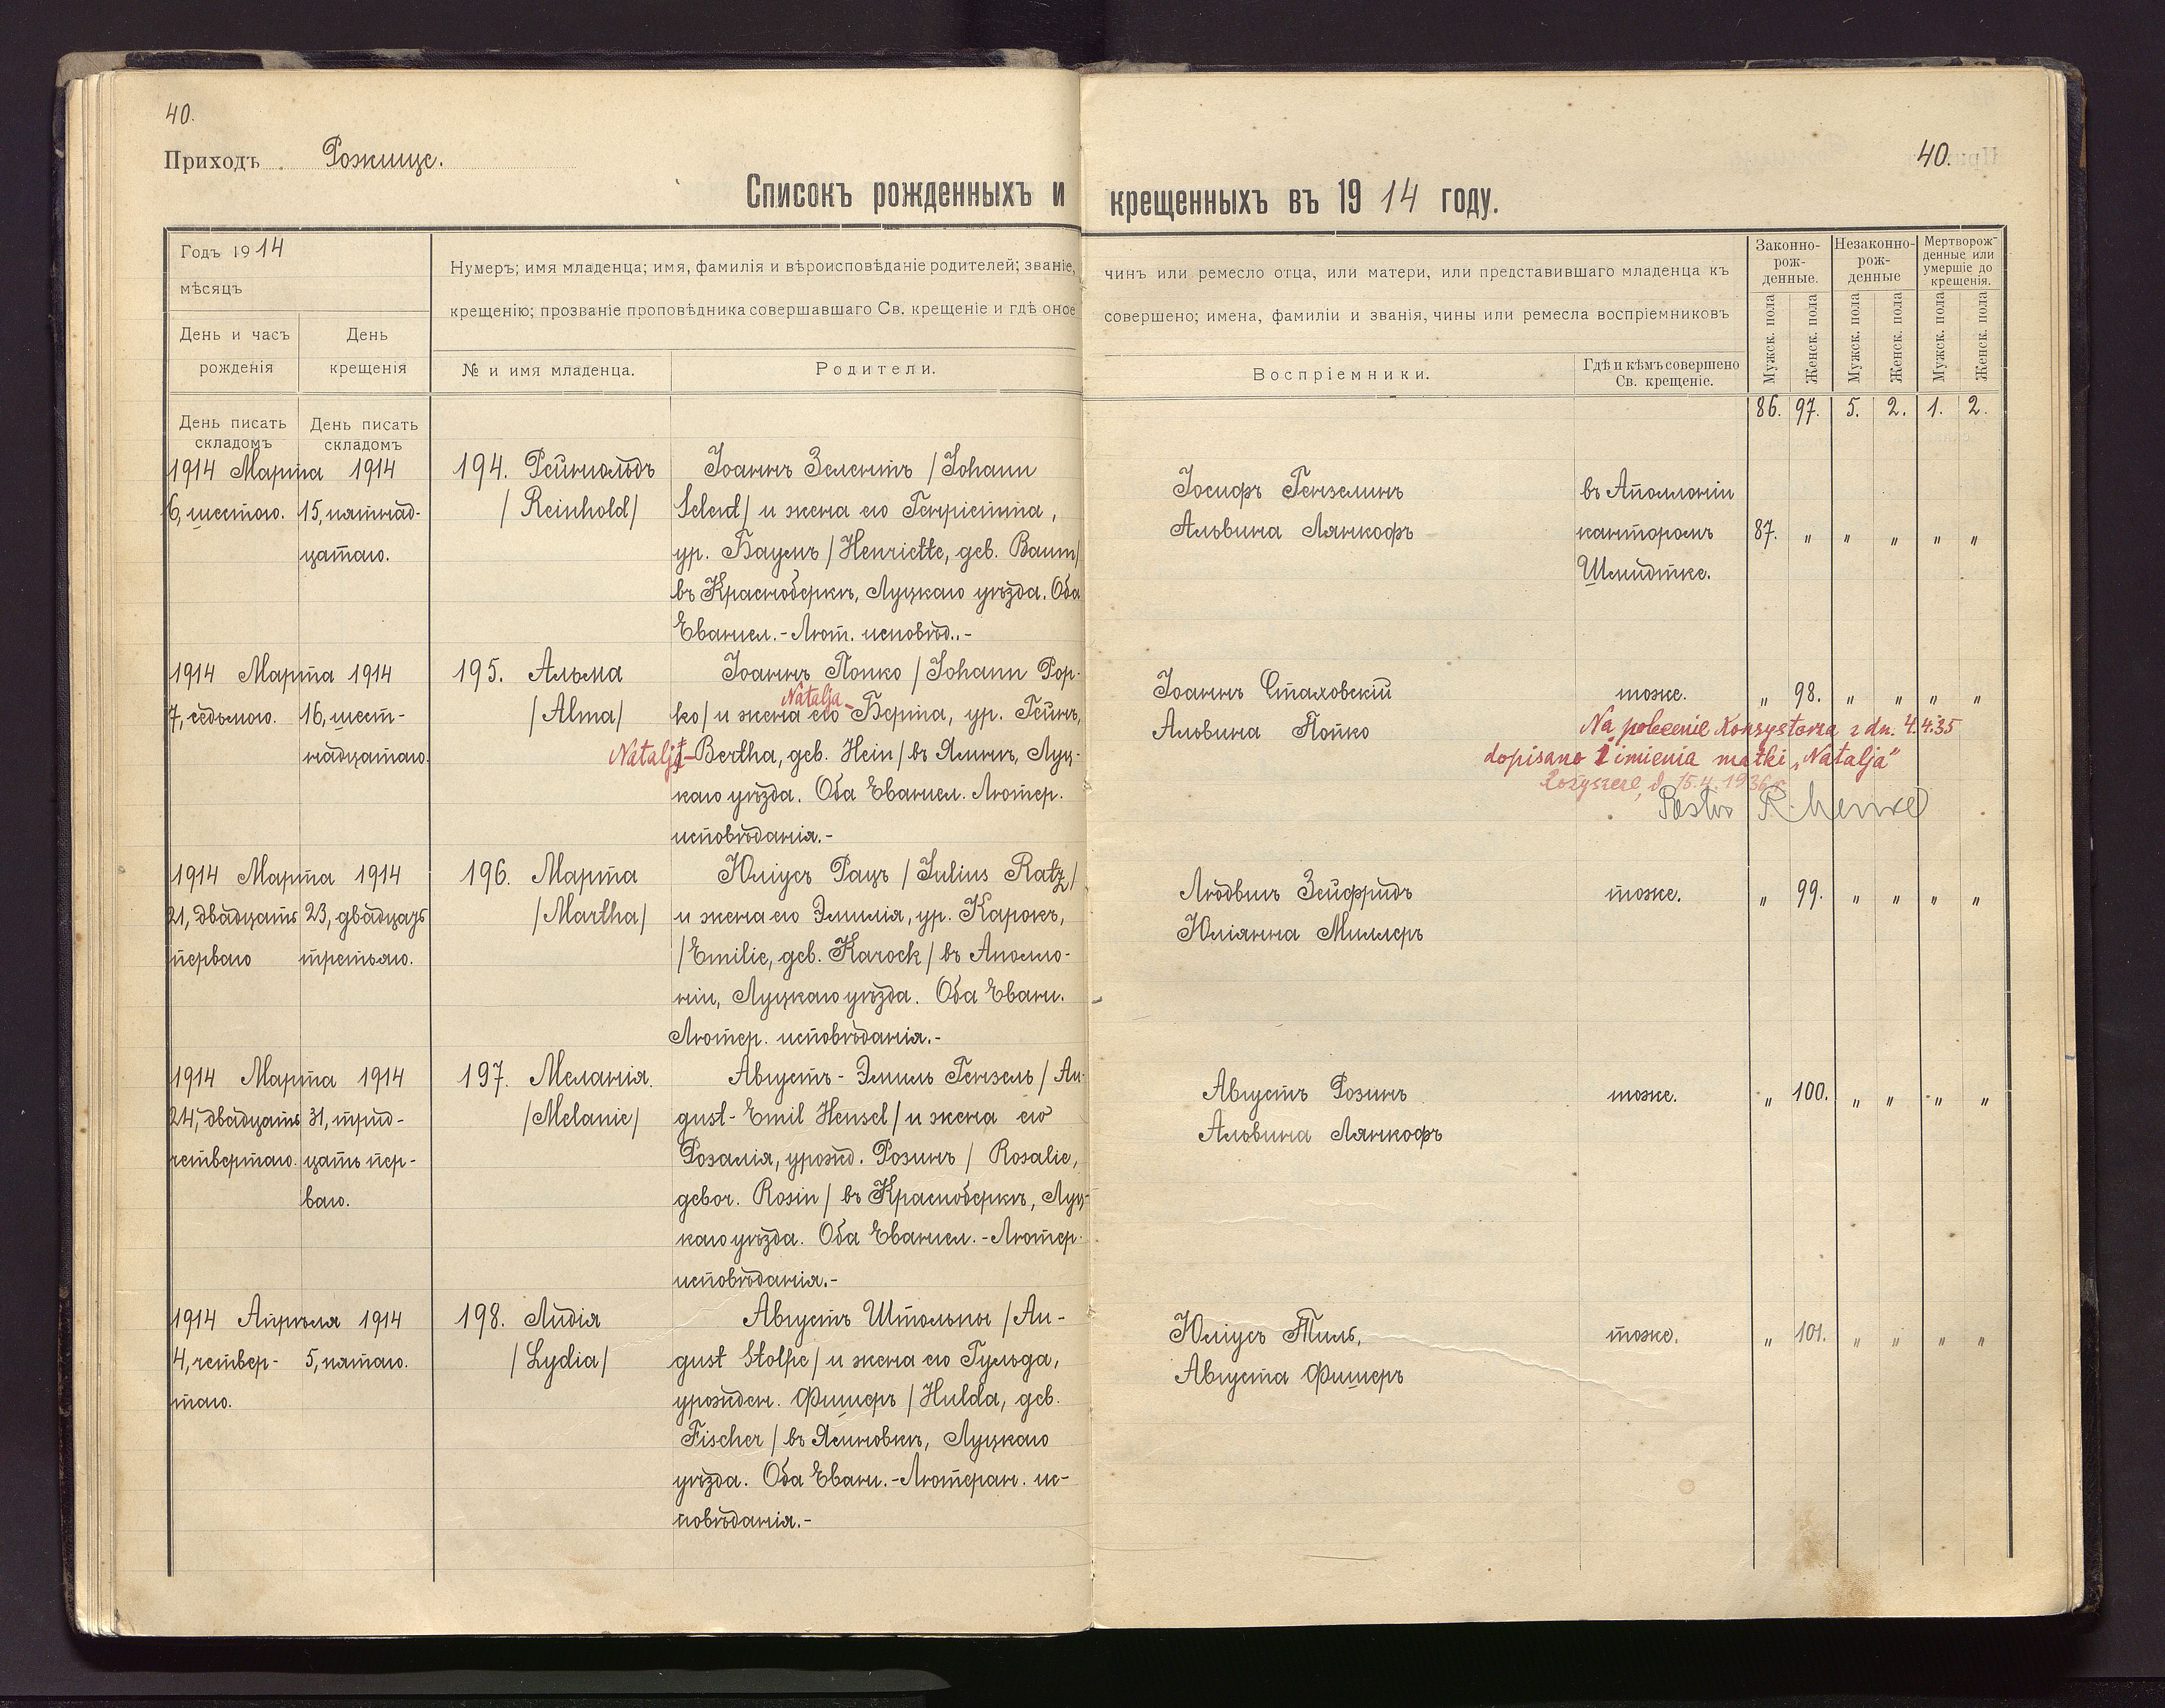 40.
Приходъ Рожище.
40.
Списокъ рожденныхъ и крещенныхъ въ 1914 году.
Годъ 1914
мѣсяцъ
День и часъ рожденія
День крещенія
Нумеръ; имя младенца; имя, фамилія и вѣроисповѣданіе родителей; званіе, чинъ или ремесло отца, или матери, или представившаго младенца къ
крещенію; прозваніе проповѣдника совершавшаго Св. крещеніе и гдѣ оное совершено; имена, фамиліи и званія, чины или ремесла воспріемниковъ
№ и имя младенца.
Родители.
Воспріемники.
Гдѣ и кѣмъ совершено
Св. крещеніе.
Законно-
рож-
денные.
Незаконно-
рож-
денные
Мертворож-
денные или
умершіе до
крещенія.
Мужск. пола
Женск. пола
Мужск. пола
Женск. пола
Мужск. пола
Женск. пола
День писать
складомъ
День писать
складомъ
86. 97. 5. 2. 1. 2.
1914 Марта 1914
6, шестого.
15, пятнад-
цатаго.
194. Рейнольдъ
/Reinhold/
Іоаннъ Зелентъ /Johann
Selent/ и жена его Генріетта,
ур. Баумъ /Henriette, geb. Baum/
въ Красноберкѣ, Луцкаго уѣзда. Оба
Евангел.-Лют. исповѣд..-
Іосифъ Гензелинъ
Альвина Лянкофъ
въ Аполлоніи
канторомъ
Шмидтке.
87. " " " " "
1914 Марта 1914
7, седьмого.
16, шест-
надцатаго.
195. Альма
/Alma/
Іоаннъ Попко /Johann Pop-
Natalja-
ko/ и жена его Берта, ур. Гейнъ,
Natalja-Bertha, geb. Hein/ въ Ялинѣ, Луц-
каго уѣзда. Оба Евангел. Лютер.
исповѣданія.-
Іоаннъ Стаховскій
Альвина Попко
тоже.
" 98. " " " "
Na polecenie Konsystorza z dn. 4.4.35
dopisano 1 imienia matki „Natalja"
Rożyszcze, d. 15.4.1936 r.
Pastor
1914 Марта 1914
21, двадцать
перваго
23, двадцать
третьяго.
196. Марта
/Martha/
Юліусъ Рацъ /Julius Ratz/
и жена его Эмилія, ур. Карокъ,
/Emilie, geb. Karock/ въ Аполло-
ніи, Луцкаго уѣзда. Оба Еванг.
Лютер. исповѣданія.-
Людвигъ Зейфридъ
Юліанна Миллеръ
тоже.
" 99. " " " "
1914 Марта 1914
24, двадцать
четвертаго.
31, трид-
цать пер-
ваго.
197. Меланія.
/Melanie/
Августъ-Эмиль Гензель /Au-
gust-Emil Hensel/ и жена его
Розалія, урожд. Розинъ /Rosalie,
gebor. Rosin/ въ Красноберкѣ, Луц-
каго уѣзда. Оба Евангел.-Лютер.
исповѣданія.-
Августъ Розинъ
Альвина Лянкофъ
тоже.
" 100. " " " "
1914 Апрѣля 1914
4, четвер-
таго.
5, пятаго.
198. Лидія
/Lydia/
Августъ Штольпы /Au-
gust Stolpe/ и жена его Гульда,
урожден. Фишеръ /Hulda, geb.
Fischer/ въ Ясиновкѣ, Луцкаго
уѣзда. Оба Еванг.-Лютеран. ис-
повѣданія.-
Юліусъ Тиль,
Августа Фишеръ
тоже.
" 101. " " " "